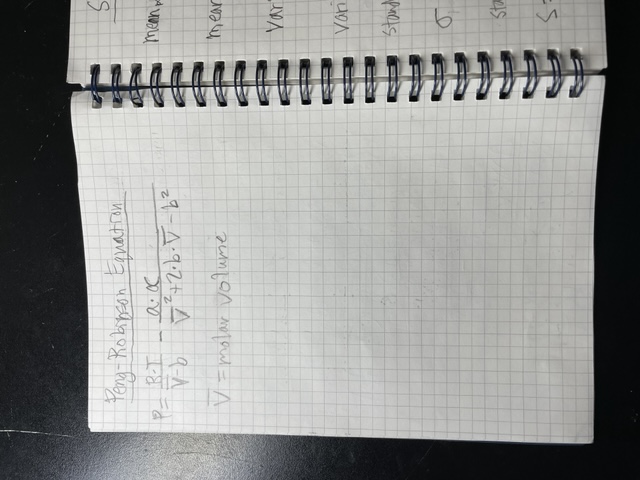 Peng-Robinson Equation
P = R·T / V̅-b - a·α / V̅² + 2·b·V̅ - b²
V̅ = molar volume
S
mean
mean
vari
vari
stand
σ
sta
S =